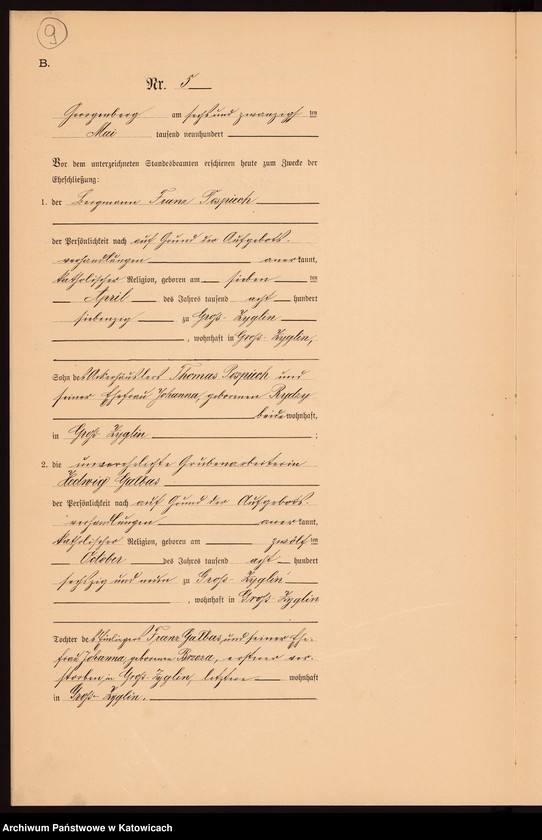 9
B.
Nr. 5
Georgenberg am sechsundzwanzigsten
Mai tausend neunhundert
Vor dem unterzeichneten Standesbeamten erschienen heute zum Zwecke der
Eheschließung:
1. der Bergmann Franz Pospiech
der Persönlichkeit nach auf Grund der Aufgebots-
verhandlungen anerkannt,
katholischer Religion, geboren am sieben ten
April des Jahres tausend acht hundert
siebenzig zu Groß-Zyglin
, wohnhaft in Groß-Zyglin,
Sohn des Ackerhäuslers Thomas Pospiech und
seiner Ehefrau Johanna, geborenen
beide wohnhaft,
in Groß-Zyglin ;
2. die unverehelichte Grubenarbeiterin
Hedwig Gallas
der Persönlichkeit nach auf Grund der Aufgebots-
verhandlungen anerkannt,
katholischer Religion, geboren am zwölf ten
October des Jahres tausend acht hundert
sechszig und neun zu Groß-Zyglin
, wohnhaft in Groß-Zyglin
Tochter des Einliegers Franz Gallas, und seiner Ehe-
frau Johanna, geborene Brzoza, ersterer ver-
storben in Groß-Zyglin, letztere wohnhaft
in Groß-Zyglin.
Archiwum Państwowe w Katowicach